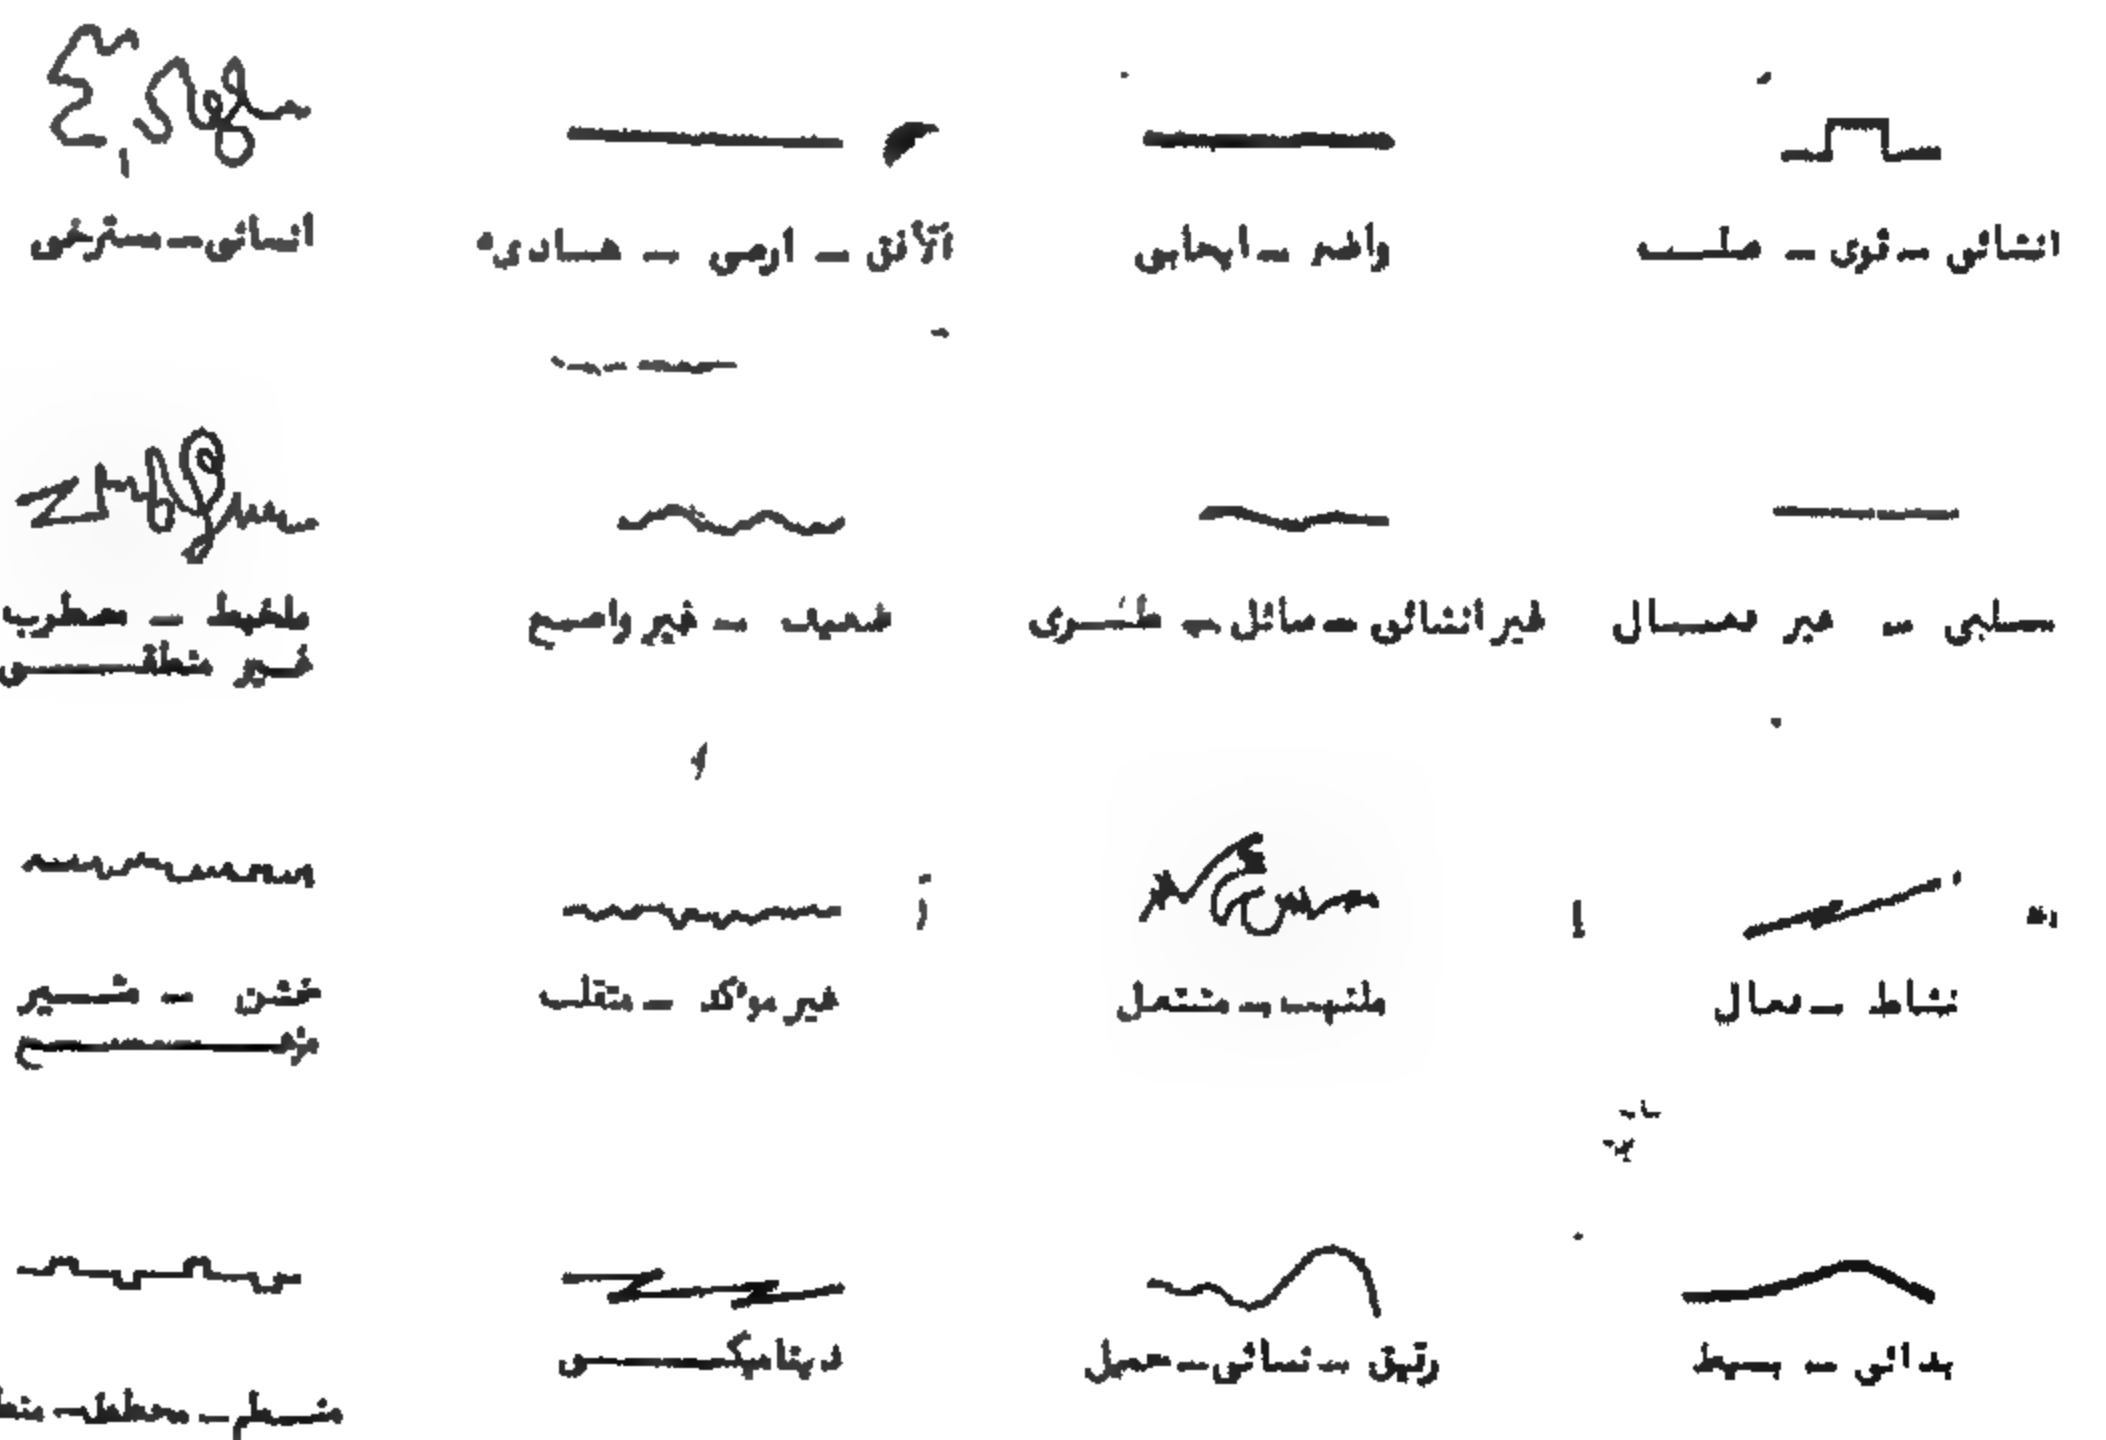 انشائى - قوى - صلب
واضح - ايجابى
الأفق - ارضى - هادىء
انسائى - مسترخى
سلبى - غير فعال
غير انشائى - مائل - طرى
ضعيف - غير واضح
ملخبط - مضطرب
غير منطقى
نشاط - فعال
ملتهب - مشتعل
غير موكد - متقلب
خشن - مثير
بدائى - بسيط
رقيق - نسائى - جميل
ديناميكى